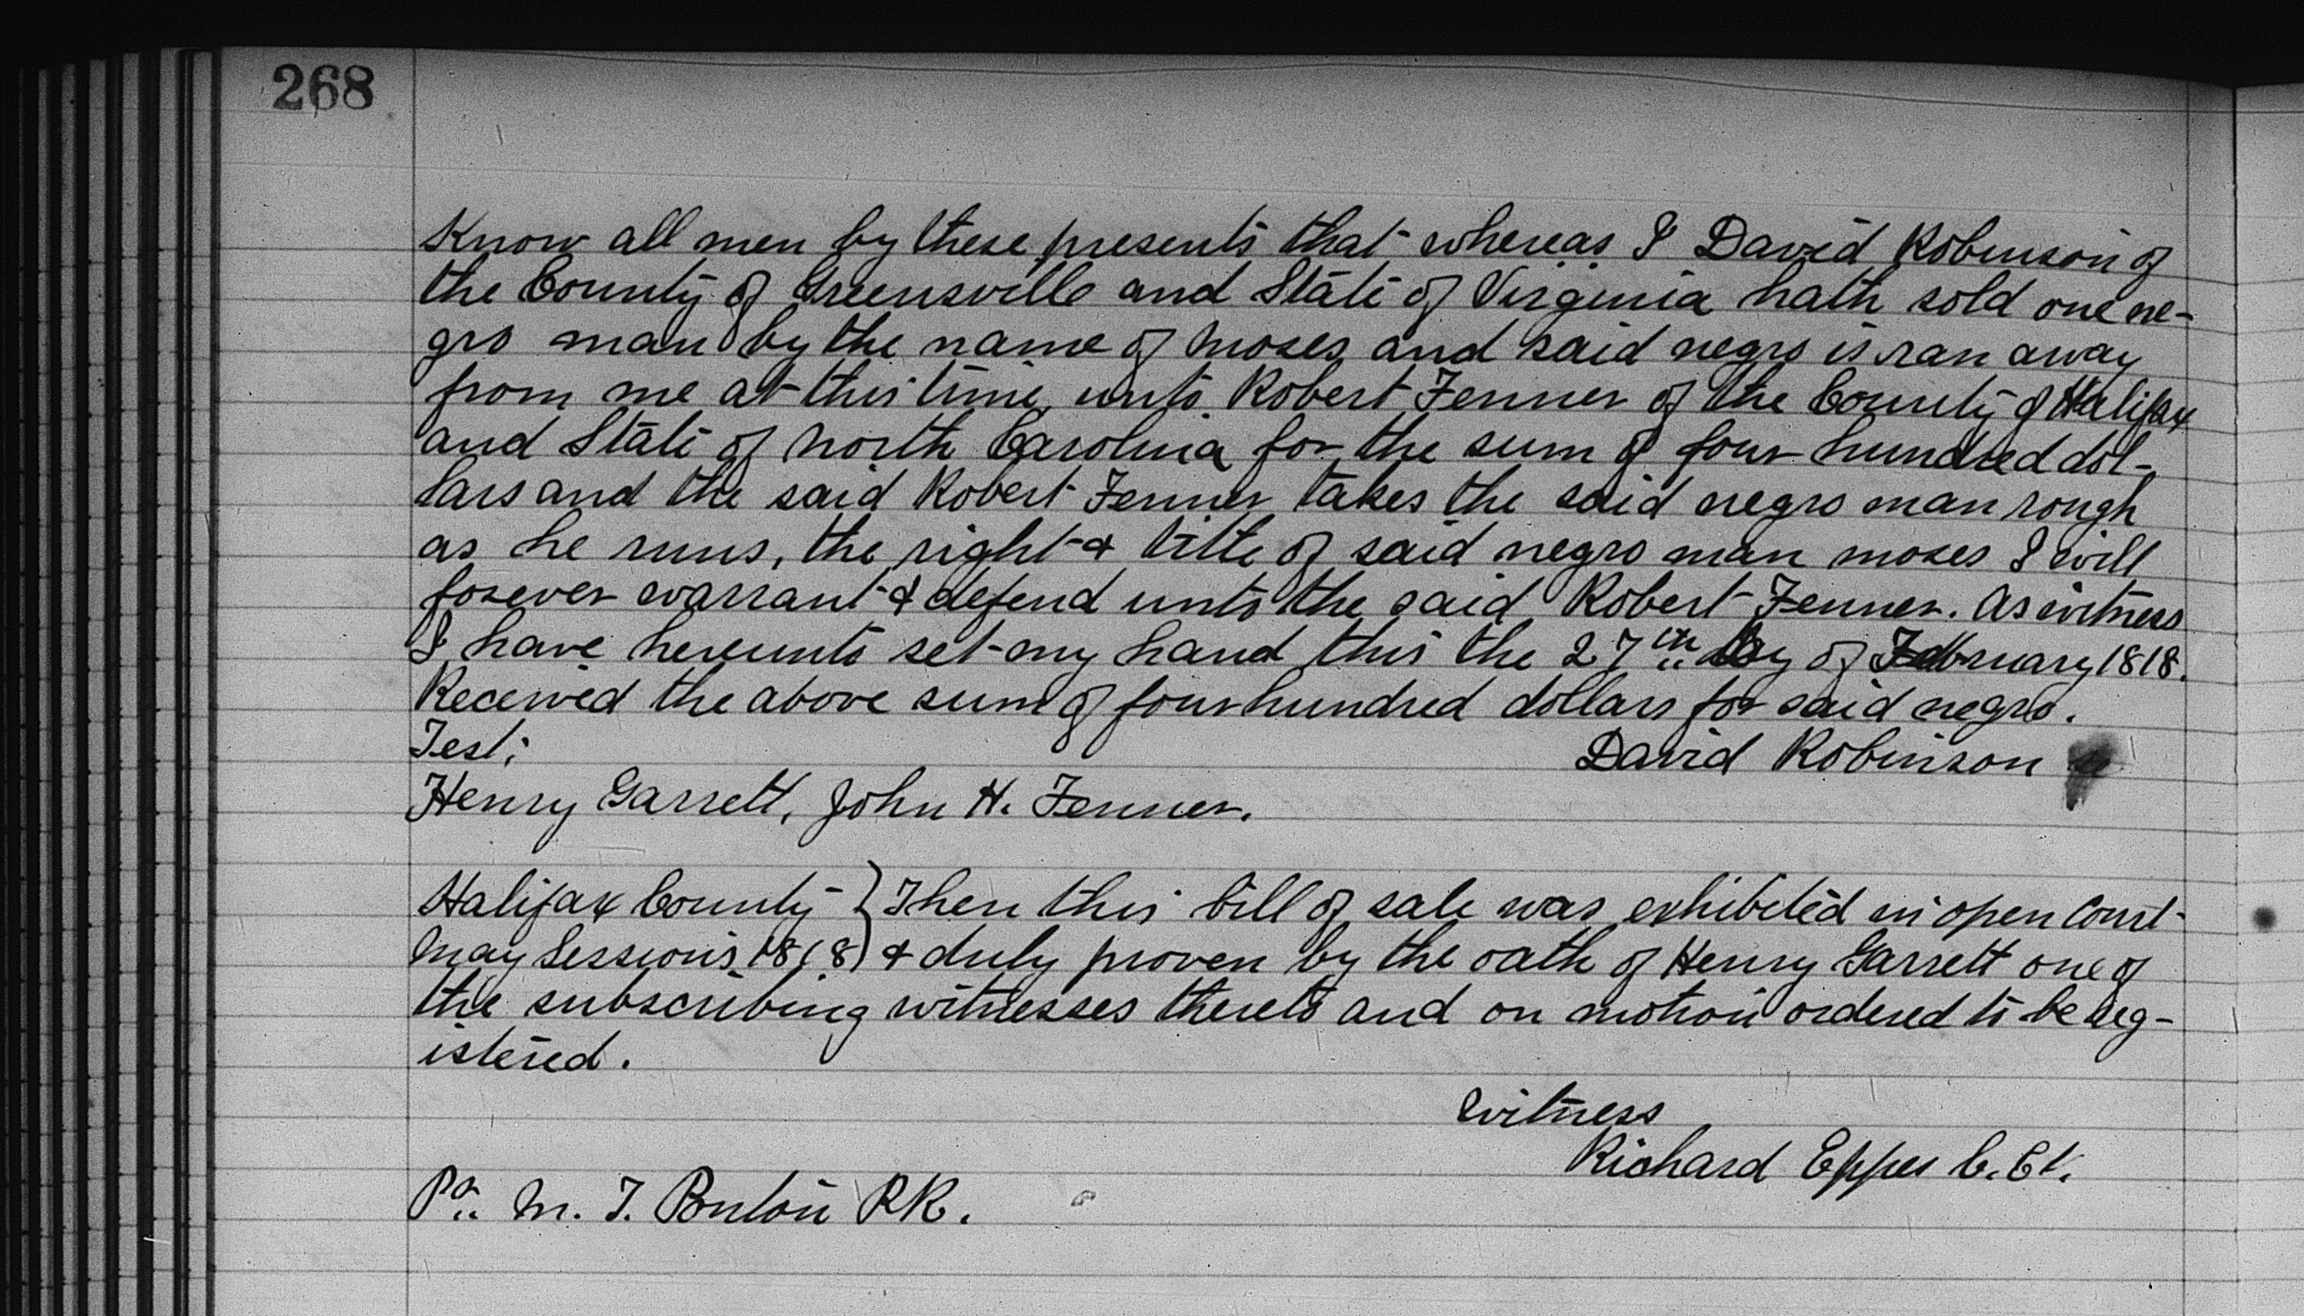 268
Know all men by these presents that whereas I David Robinson of
the County of Greensville and State of Virginia hath sold one ne-
gro man by the name of Moses and said negro is ran away
from me at this time unto Robert Fenner of the County of Halifax
and State of North Carolina for the sum of four hundred dol-
lars and the said Robert Fenner takes the said negro man rough
as he runs, the right & title of said negro man moses I will
forever warrant & defend unto the said Robert Fenner. As witness
I have hereunto set my hand this the 27th day of February 1818.
Received the above sum of four hundred dollars for said negro.
Test; David Robinson
Henry Garrett, John H. Fenner.
Halifax County } Then this bill of sale was exhibited in open Court
May Sessions 1818 } & duly proven by the oath of Henry Garrett one of
the subscribing witnesses thereto and on motion ordered to be reg-
istered.
Witness
Richard Eppes C. Ct.
Pr. M. T. Ponton P.R.